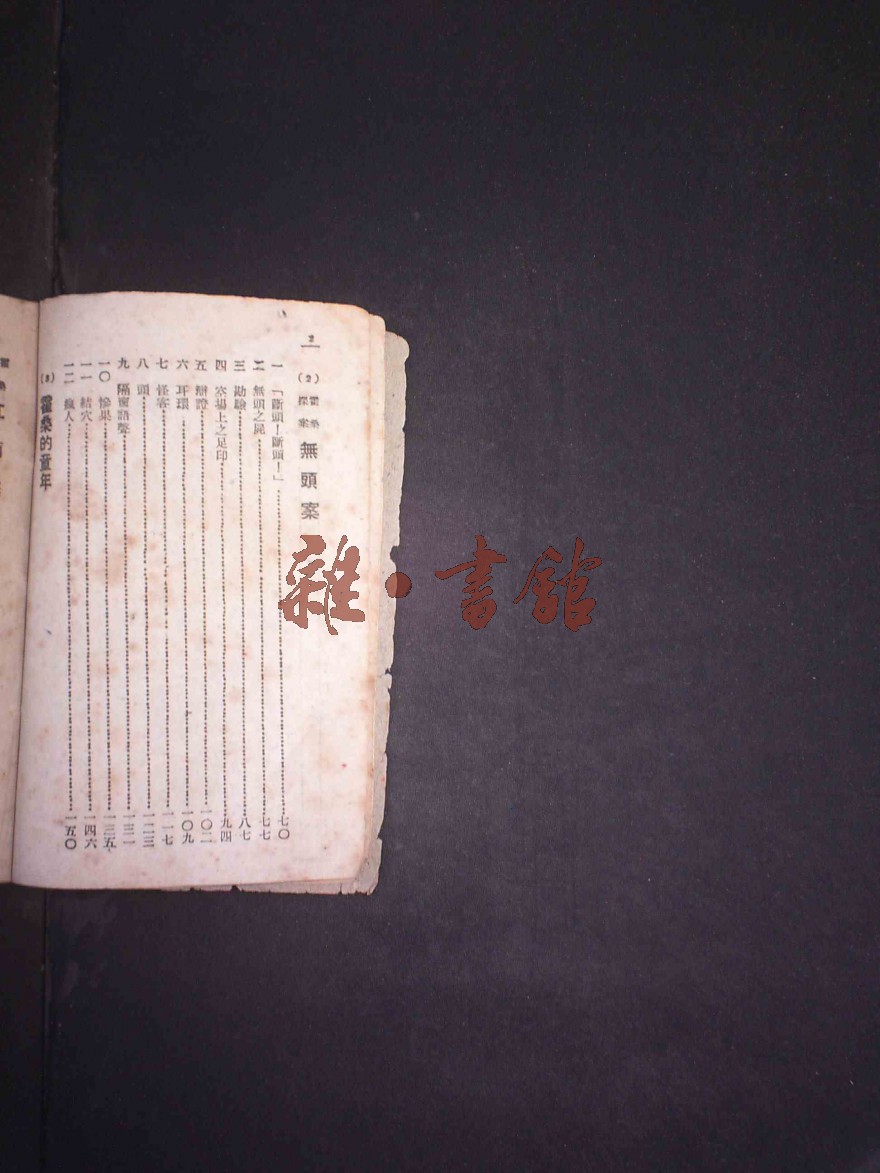 2
(2) 霍桑探案 無頭案
一 「斷頭!斷頭!」 七〇
二 無頭之屍 七七
三 勘驗 八七
四 空場上之足印 九四
五 辯證 一〇二
六 耳環 一〇九
七 怪客 一一七
八 頭 一二三
九 隔窗語聲 一三一
一〇 慘果 一三五
一一 結穴 一四六
一二 瘋人 一五〇
(3) 霍桑的童年
雜·書館